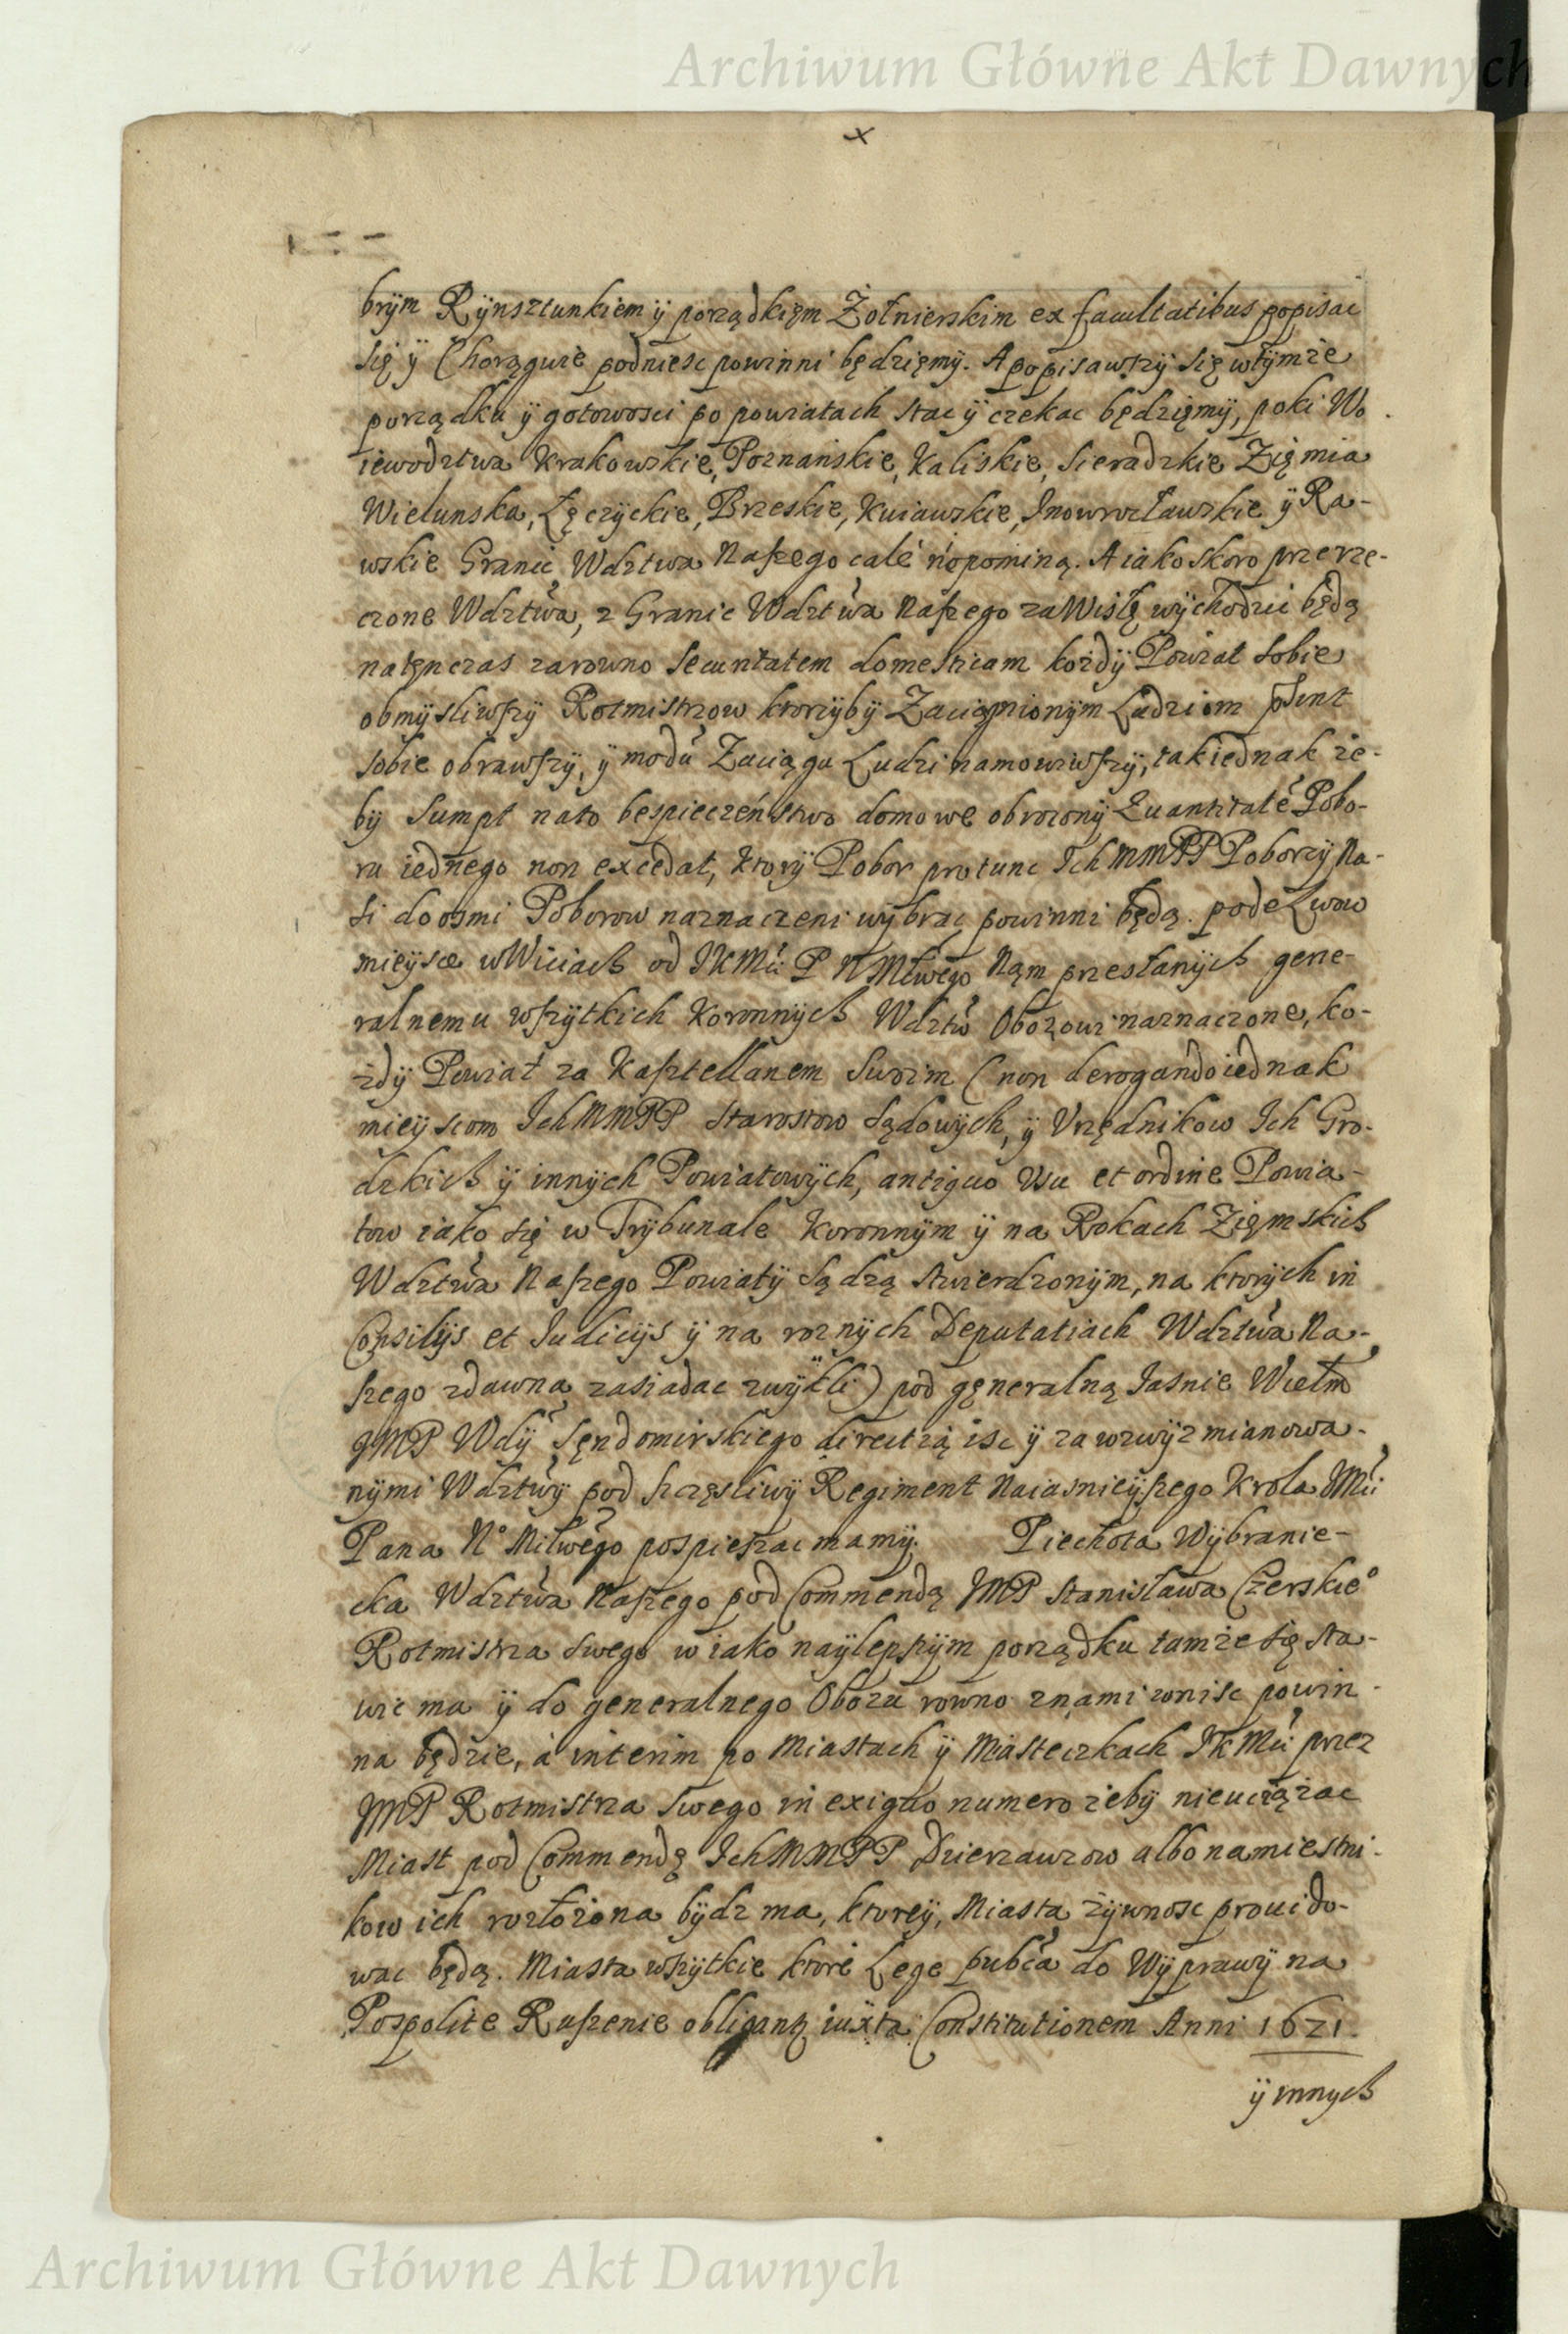 Archiwum Główne Akt Dawnych
brÿm Rÿnsztunkiem ÿ porządkięm Żołnierskim ex facultatibus popisac
się ÿ Chorągwie podniesc powinni będzięmÿ. A popisawszÿ się wtÿmże
porządku ÿ gotowosci po powiatach stac ÿ czekac będzięmÿ, poki Wo
iewodztwa Krakowskie, Poznańskie, Kaliskie, Sieradzkie Zięmia
Wielunska, Łęczÿckie, Brzeskie, Kuiawskie, Inowrocławskie ÿ Ra-
wskie Granic Wdztwa Naszego cale nopominą. A iako skoro przerze-
czone Wdztwa, z Granic Wdztwa Naszego za Wisłę wÿchodzić będą
natęnczas zarowno Securitatem domesticam kożdÿ Powiat sobie
obmÿsliwszÿ Rotmistrzow ktorzÿbÿ Zaciągnionÿm Ludziom psint
sobie obrawszÿ, ÿ modu Zaciągu Ludzi namowiwszÿ, tak iednak że-
bÿ Sumpt nato bespieczeństwo domowe obroconÿ Quantitate Pobo-
ru iednego non excedat, ktorÿ Pobor protunc Ich MMPP Poborcÿ Na-
si do osmi Poborow naznaczeni wÿbrac powinni będą. pode Lwow
mieÿsce w Wiciach od IKMci P N Mlwego Nąm przesłanÿch gene-
ralnemu wszÿtkich Koronnÿch Wdztw Obozowi naznaczone, ko-
żdÿ Powiat za Kasztellanem Swoim (non derogando iednak
mieÿscom Ich MMPP Starostow Sądowÿch, ÿ Vrzędnikow Ich Gro-
dzkich ÿ innÿch Powiatowÿch, antiquo usu et ordine Powia-
tow iako się w Trÿbunale Koronnÿm ÿ na Rokach Zięmskich
Wdztwa Naszego Powiatÿ Sądzą stwierdzonÿm, na ktorÿch in
Consilÿs et Iudicÿs ÿ na roznÿch Deputatiach Wdztwa Na-
szego zdawna zasiadac zwÿkli) pod gęneralną Iasnie Wielm
JMP Wdÿ Sęndomirskiego directią isc ÿ za wzwÿz mianowa-
nÿmi Wdztwÿ pod szczęsliwÿ Regiment Naiasnieÿszego Krola JMci
Pana No Miłwego pospieszac mamÿ. Piechota Wÿbranie-
cka Wdztwa Naszego pod Commendą JMP Stanisława Czerskieo
Rotmistrza swego w iako naÿlepszÿm porządku tamże się sta-
wic ma ÿ do generalnego Obozu rowno znami ronisc powin-
na będzie, a interim po Miastach ÿ Miasteczkach IKMci przez
JMP Rotmistrza Swego in exiguo numero żebÿ nieuciążac
Miast pod Commendę Ich MMPP Dzierzawcow albo namiestni-
kow ich rozłożona bÿdz ma, ktoreÿ, Miasta żÿwnosc prouido-
wac będą. Miasta wszÿtkie ktore Lege pubca do Wÿprawÿ na
Pospolite Ruszenie obligantq iuxta Constitutionem Anni 1621.
ÿ innÿch
Archiwum Główne Akt Dawnych